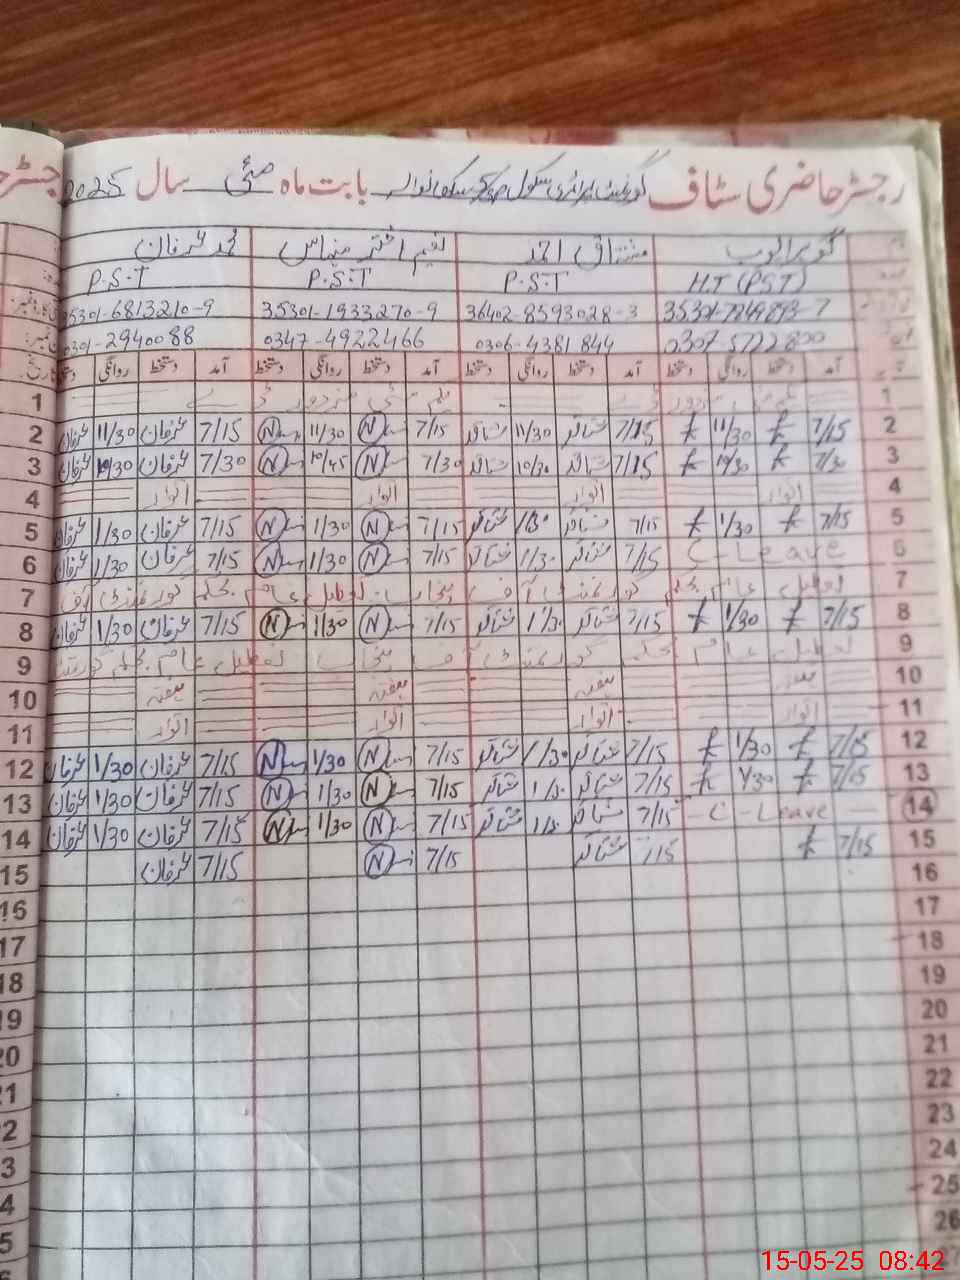 رجسٹر حاضری سٹاف گورنمنٹ پرائمری سکول بابت ماہ مئی سال 2025
گوہر ایوب مشتاق احمد نعیم اختر منہاس محمد عرفان
H.T (PST) P.S.T P.S.T P.S.T
36402-8593028-3 35301-1933270-9 35301-6813210-9
0306-4381844 0347-4922466 0301-2940088
آمد دستخط روانگی دستخط آمد دستخط روانگی دستخط آمد دستخط روانگی دستخط آمد دستخط روانگی دستخط
1 یکم مئی مزدور ڈے 1
2 7/15 11/30 7/15 مشتاق 11/30 مشتاق 7/15 N 11/30 N 7/15 عرفان 11/30 عرفان 2
3 7/30 10/30 7/15 مشتاق 10/30 مشتاق 7/30 N 10/45 N 7/30 عرفان 10/30 عرفان 3
4 اتوار اتوار اتوار اتوار 4
5 7/15 1/30 7/15 مشتاق 1/30 مشتاق 7/15 N 1/30 N 7/15 عرفان 1/30 عرفان 5
6 C-Leave 7/15 مشتاق 1/30 مشتاق 7/15 N 1/30 N 7/15 عرفان 1/30 عرفان 6
7 تعطیل عام بحکم گورنمنٹ آف پنجاب تعطیل عام بحکم گورنمنٹ آف 7
8 7/15 1/30 7/15 مشتاق 1/30 مشتاق 7/15 N 1/30 N 7/15 عرفان 1/30 عرفان 8
9 تعطیل عام بحکم گورنمنٹ آف پنجاب تعطیل عام بحکم گورنمنٹ 9
10 ہفتہ ہفتہ ہفتہ ہفتہ 10
11 اتوار اتوار اتوار اتوار 11
12 7/15 1/30 7/15 مشتاق 1/30 مشتاق 7/15 N 1/30 N 7/15 عرفان 1/30 عرفان 12
13 7/15 1/30 7/15 مشتاق 1/30 مشتاق 7/15 N 1/30 N 7/15 عرفان 1/30 عرفان 13
14 C-Leave 7/15 مشتاق 1/30 مشتاق 7/15 N 1/30 N 7/15 عرفان 1/30 عرفان 14
15 7/15 7/15 مشتاق 7/15 N 7/15 عرفان 15
16 16
17 17
18 18
19 19
20 20
21 21
22 22
23 23
24 24
25 25
26
15-05-25 08:42